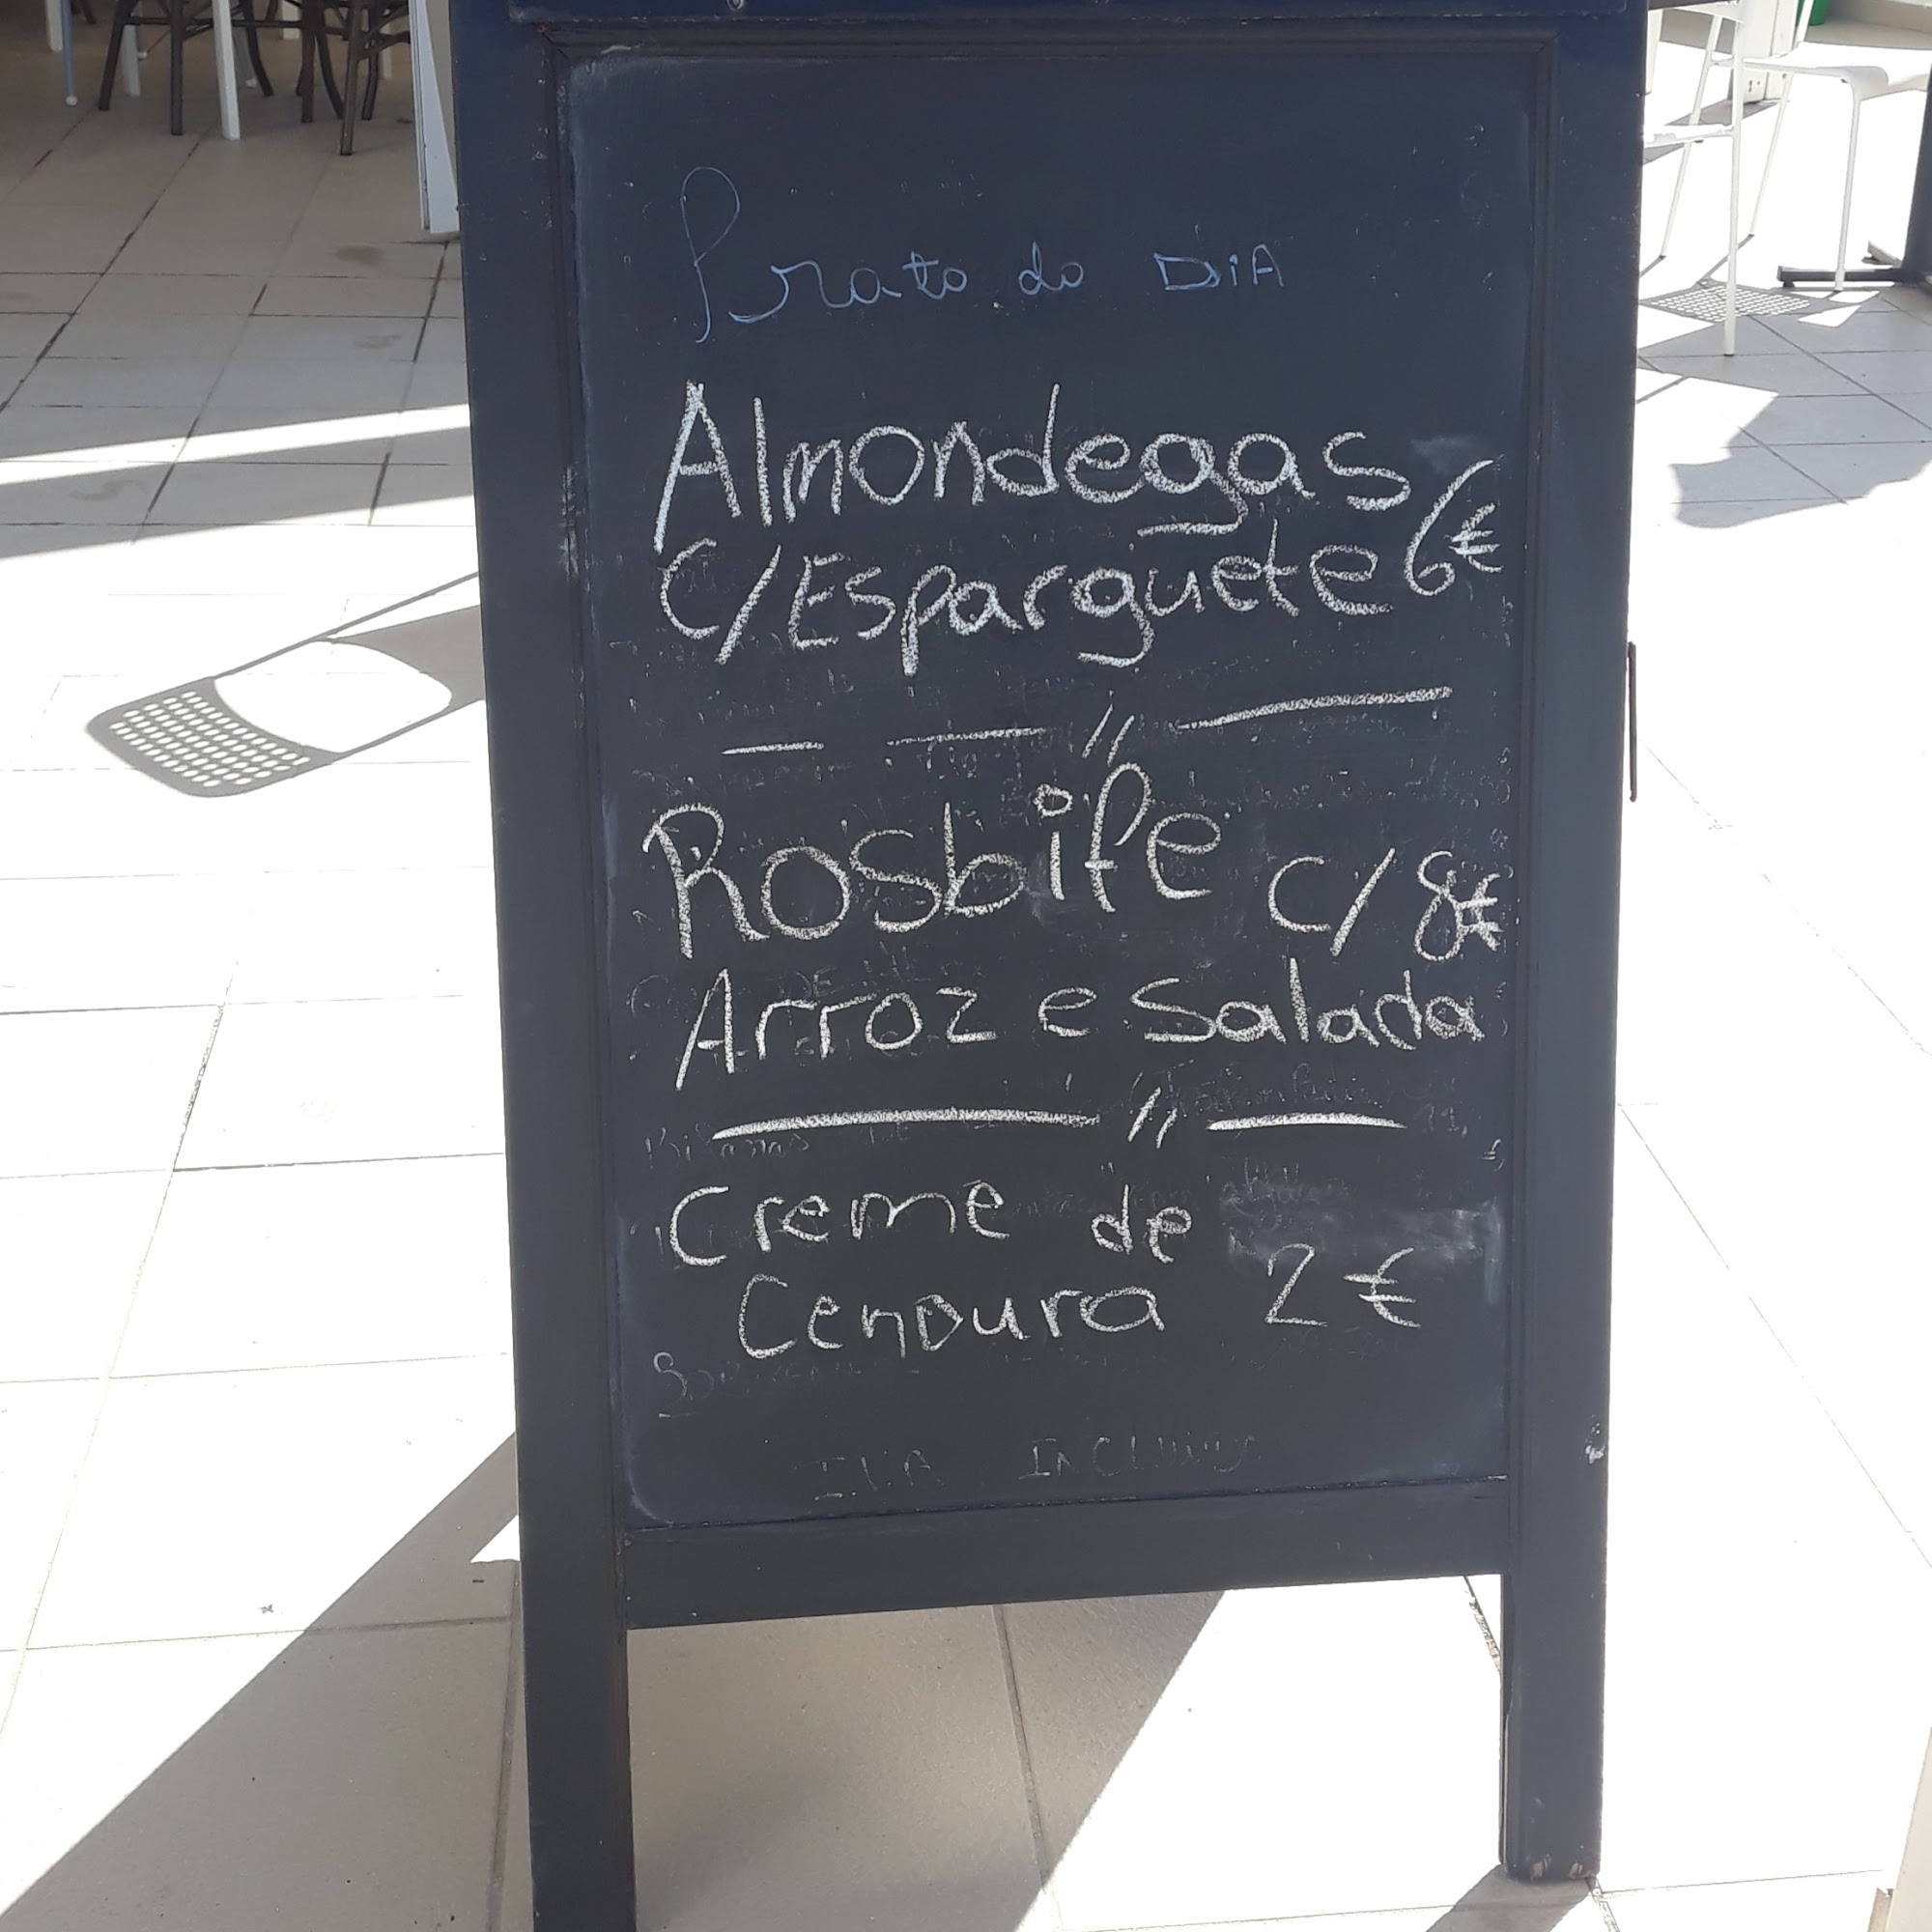 Prato do DIA
Almondegas
C/Esparguete 6€
— — // —
Rosbife C/ 8€
Arroz e Salada
— // —
Creme de
Cenoura 2€
IVA INCLUIDO